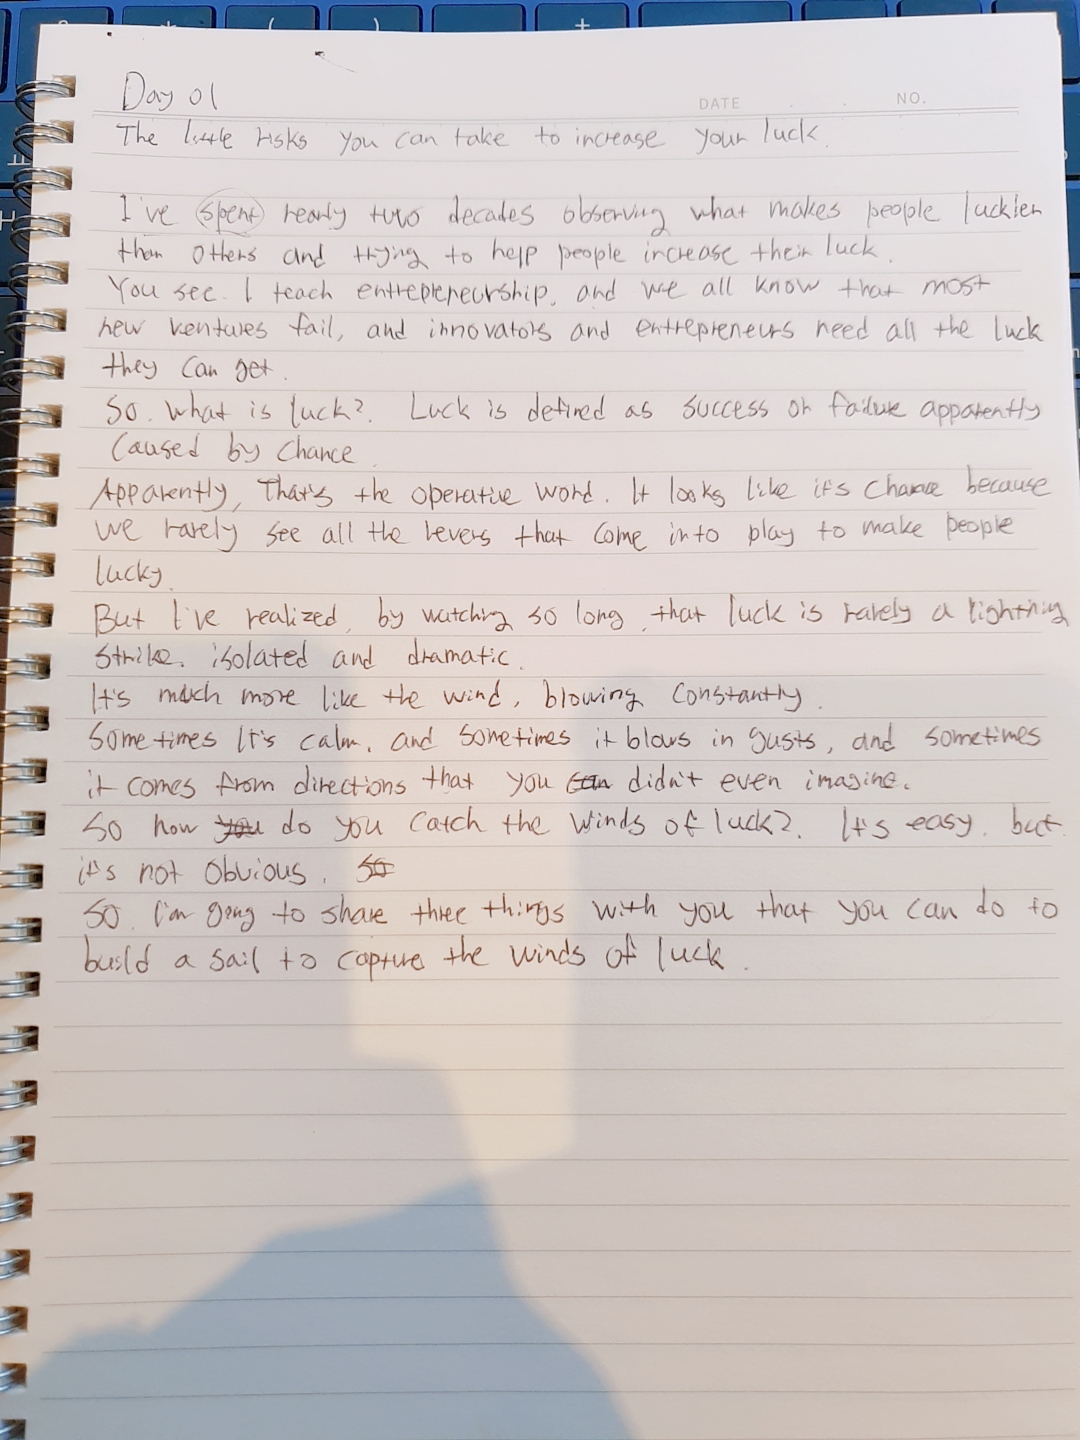 Day 01
DATE . . NO.
The little risks you can take to increase your luck.
I've spent nearly two decades observing what makes people luckier
than others and trying to help people increase their luck.
You see. I teach entrepreneurship, and we all know that most
new ventures fail, and innovators and entrepreneurs need all the luck
they can get.
So. what is luck?. Luck is defined as success or failure apparently
caused by chance.
Apparently, That's the operative word. It looks like it's chance because
we rarely see all the levers that come into play to make people
lucky.
But I've realized, by watching so long, that luck is rarely a lightning
strike. isolated and dramatic.
It's much more like the wind, blowing constantly.
Sometimes It's calm, and sometimes it blows in gusts, and sometimes
it comes from directions that you can didn't even imagine.
So how you do you catch the winds of luck?. It's easy. but
it's not obvious. So
So. I'm going to share three things with you that you can do to
build a sail to capture the winds of luck.